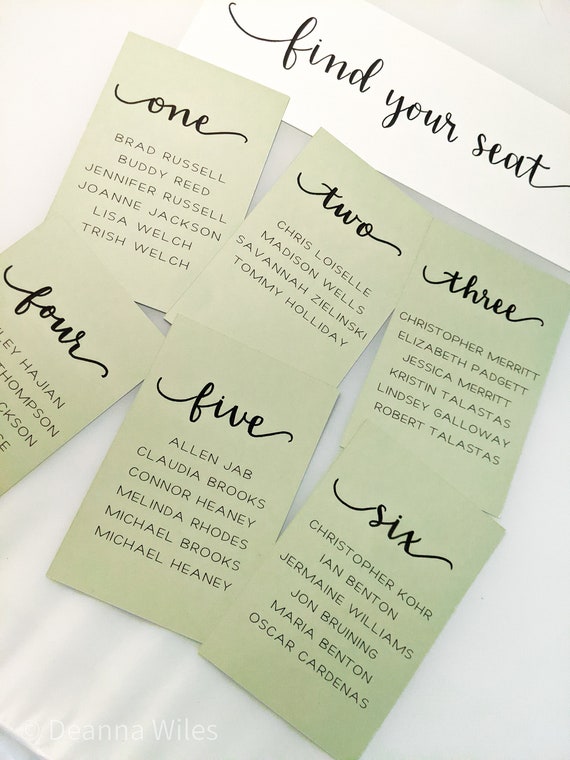 find your seat
one
BRAD RUSSELL
BUDDY REED
JENNIFER RUSSELL
JOANNE JACKSON
LISA WELCH
TRISH WELCH
two
CHRIS LOISELLE
MADISON WELLS
SAVANNAH ZIELINSKI
TOMMY HOLLIDAY
three
CHRISTOPHER MERRITT
ELIZABETH PADGETT
JESSICA MERRITT
KRISTIN TALASTAS
LINDSEY GALLOWAY
ROBERT TALASTAS
four
HAJIAN
THOMPSON
five
ALLEN JAB
CLAUDIA BROOKS
CONNOR HEANEY
MELINDA RHODES
MICHAEL BROOKS
MICHAEL HEANEY
six
CHRISTOPHER KOHR
IAN BENTON
JERMAINE WILLIAMS
JON BRUINING
MARIA BENTON
OSCAR CARDENAS
© Deanna Wiles